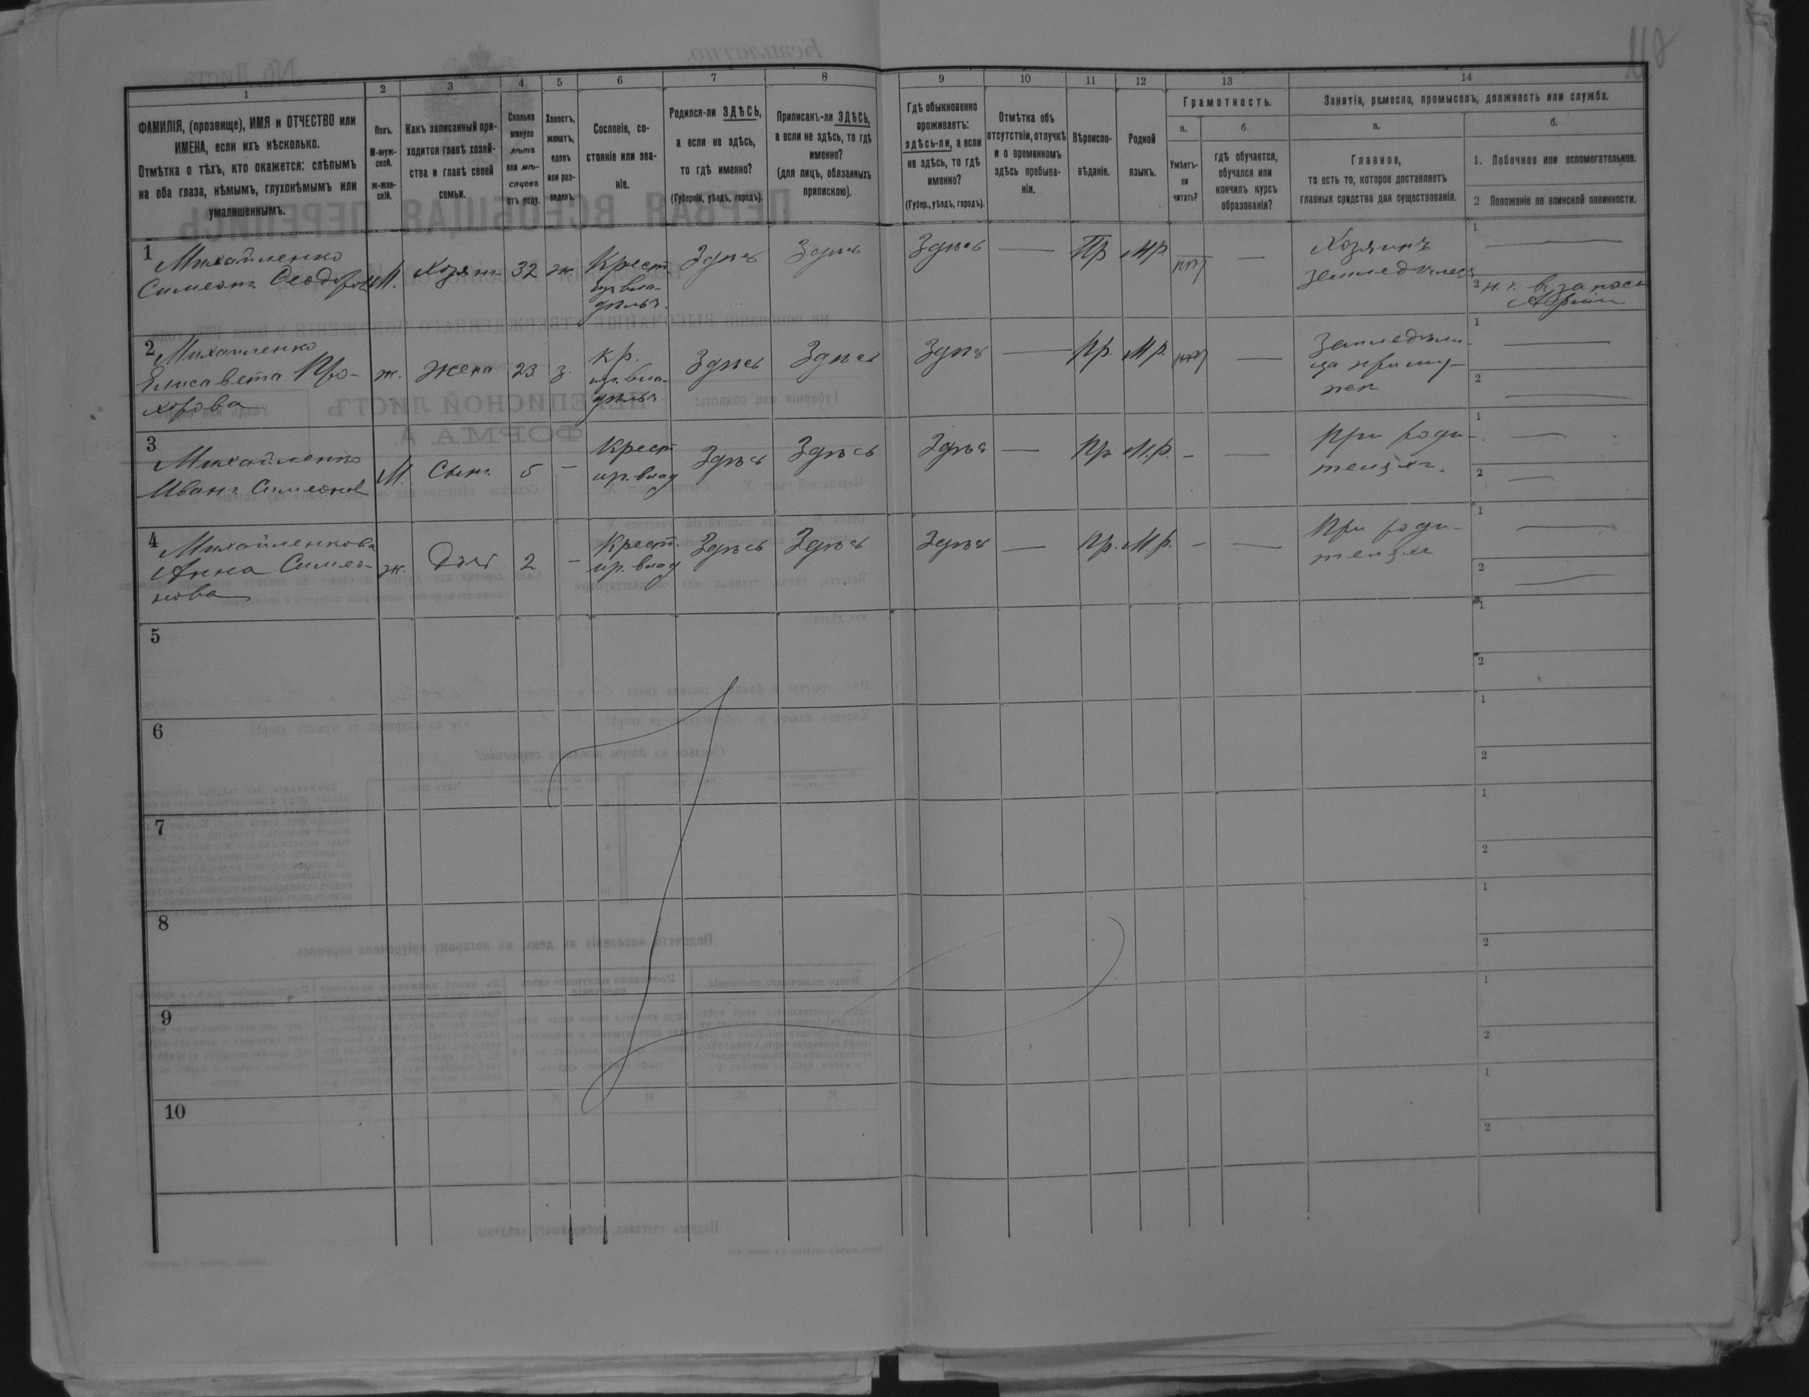 1 2 3 4 5 6 7 8 9 10 11 12 13 14
ФАМИЛІЯ, (прозвище), ИМЯ и ОТЧЕСТВО или
ИМЕНА, если ихъ нѣсколько.
Отмѣтка о тѣхъ, кто окажется: слѣпымъ
на оба глаза, нѣмымъ, глухонѣмымъ или
умалишеннымъ.
Полъ.
М-муж-
ской.
Ж-жен-
скій.
Какъ записанный при-
ходится главѣ хозяй-
ства и главѣ своей
семьи.
Сколько
минуло
лѣтъ
или мѣ-
сяцевъ
отъ роду.
Холостъ,
женатъ,
вдовъ
или раз-
веденъ.
Сословіе, со-
стояніе или зва-
ніе.
Родился-ли ЗДѢСЬ,
а если не здѣсь,
то гдѣ именно?
(Губернія, уѣздъ, городъ).
Приписанъ-ли ЗДѢСЬ,
а если не здѣсь, то гдѣ
именно?
(для лицъ, обязанныхъ
припискою).
Гдѣ обыкновенно
проживаетъ:
здѣсь-ли, а если
не здѣсь, то гдѣ
именно?
(Губер., уѣздъ, городъ).
Отмѣтка объ
отсутствіи, отлучкѣ
и о временномъ
здѣсь пребыва-
ніи.
Вѣроиспо-
вѣданіе.
Родной
языкъ.
Грамотность.
а.
Умѣетъ-
ли
читать?
б.
гдѣ обучается,
обучался или
кончилъ курсъ
образованія?
Занятіе, ремесло, промыселъ, должность или служба.
а.
Главное,
то есть то, которое доставляетъ
главныя средства для существованія.
б.
1. Побочное или вспомогательное.
2 Положеніе по воинской повинности.
1
Михайленко
Симеонъ Феодоров
М.
Хозяин
32
ж.
Крест
Здѣсь
Здѣсь
Здѣсь
Пр
Мр
нѣт
Хозяинъ
земледѣлецъ
1
2
в запасѣ
Арміи
2
Михаиленко
Елисавета Про-
хорова
ж.
жена
23
з.
Кр.
Здѣсь
Здѣсь
Здѣсь
Пр.
Мр.
нѣт
1
2
3
Михайленко
Иванъ Симеонов
М.
Сынъ
5
Крест
пр. влад
Здѣсь
Здѣсь
Здѣсь
Пр
Мр.
При роди-
теляхъ.
1
2
4
Михайленкова
Анна Симео-
нова
ж.
Доч
2
Крест.
пр. влад
Здѣсь
Здѣсь
Здѣсь
Пр.
Мр.
При роди-
теляхъ
1
2
5
1
2
6
1
2
7
1
2
8
1
2
9
1
2
10
1
2